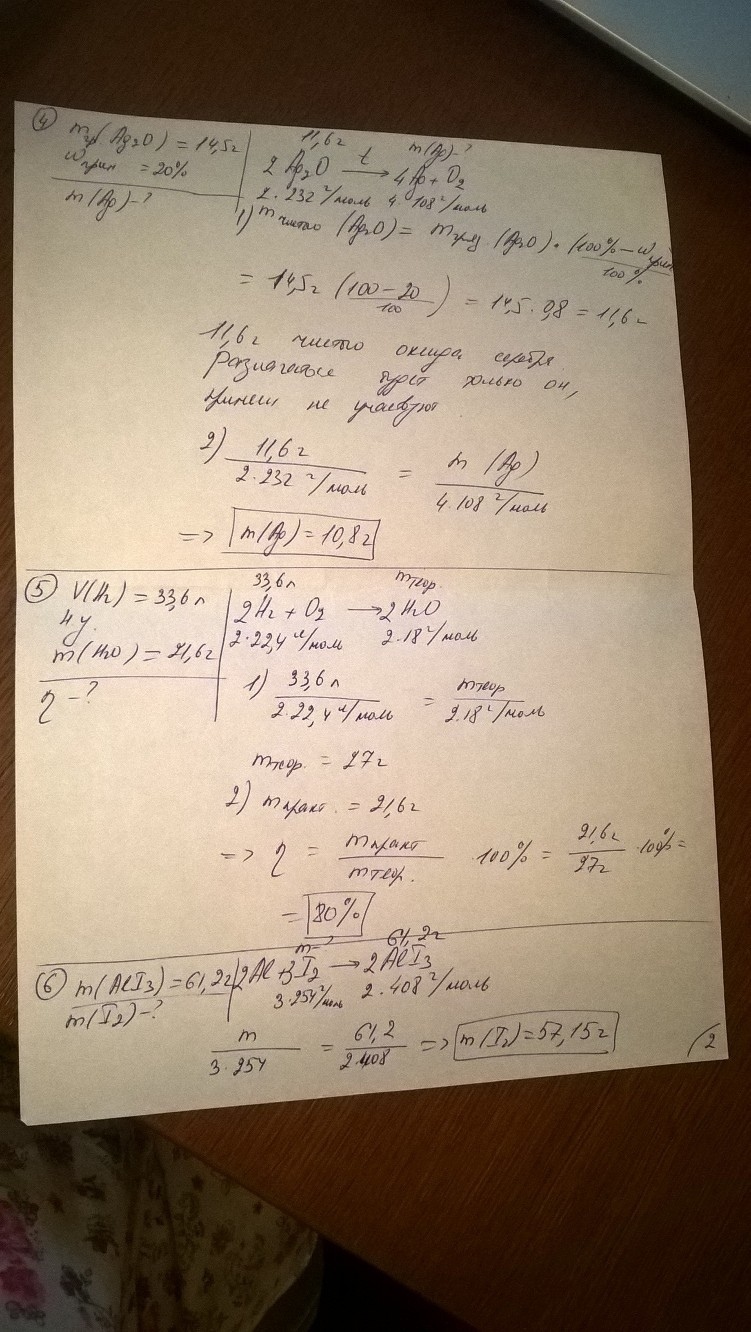 4
m гр(Ag2O) = 14,5г
11,6г
m(Ag)-?
ω прим = 20%
2Ag2O t→ 4Ag + O2
m(Ag)-?
2·232 г/моль 4·108 г/моль
1) m чистого (Ag2O) = m гряз. (Ag2O) · (100% - ω прим / 100%
= 14,5г (100 - 20 / 100) = 14,5 · 0,8 = 11,6г
11,6г чистого оксида серебра.
Разлагаться будет только он,
примеси не участвуют
2) 11,6г / 2·232 г/моль = m (Ag) / 4·108 г/моль
=> m(Ag) = 10,8г
5
V(H2) = 33,6л
33,6л
m теор.
н.у.
2H2 + O2 → 2H2O
m(H2O) = 21,6г
2·22,4 л/моль 2·18 г/моль
η - ?
1) 33,6л / 2·22,4 л/моль = m теор / 2·18 г/моль
m теор. = 27г
2) m практ. = 21,6г
=> η = m практ / m теор. · 100% = 21,6г / 27г · 100% =
= 80%
6
m-?
61,2г
m(AlI3) = 61,2г
2Al + 3I2 → 2AlI3
m(I2) - ?
3·254 г/моль 2·408 г/моль
m / 3·254 = 61,2 / 2·408 => m(I2) = 57,15г
2